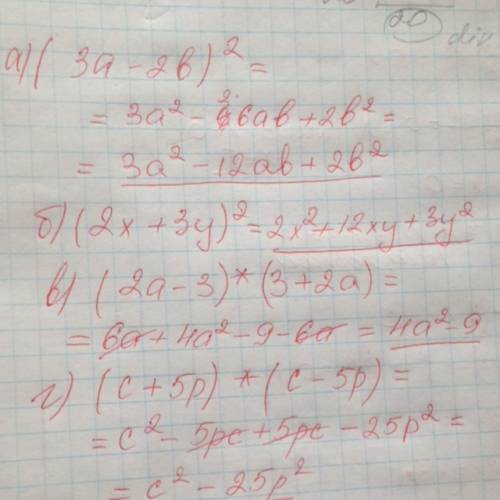 20
div
а) ( 3a - 2b )² =
= 3a² - 2·6ab + 2b² =
= 3a² - 12ab + 2b²
б) (2x + 3y)² = 2x² + 12xy + 3y²
в) ( 2a - 3 ) * (3 + 2a) =
= 6a + 4a² - 9 - 6a = 4a² - 9
г) (c + 5p) * (c - 5p) =
= c² - 5pc + 5pc - 25p² =
= c² - 25p²